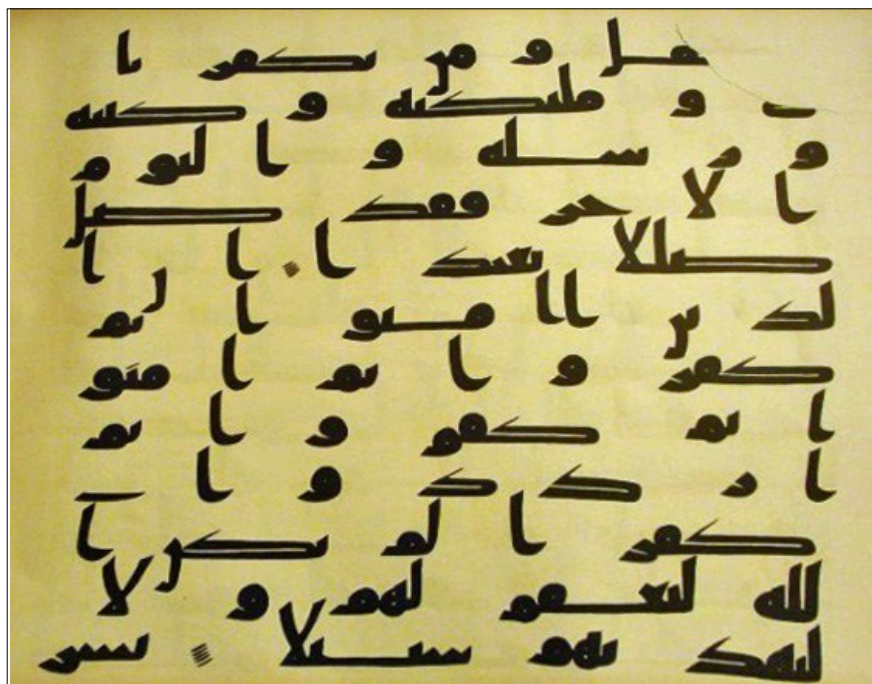 قبل و من يكفر با
و ملئكته و كتبه
و رسله و اليوم
الاخر فقد ضل
ضللا بعيدا ان ا
لذين امنوا ثم
كفروا ثم امنو
ا ثم كفروا ثم
ازدادوا
كفرا لم يكن ا
لله ليغفر لهم و لا
ليهديهم سبيلا بشر